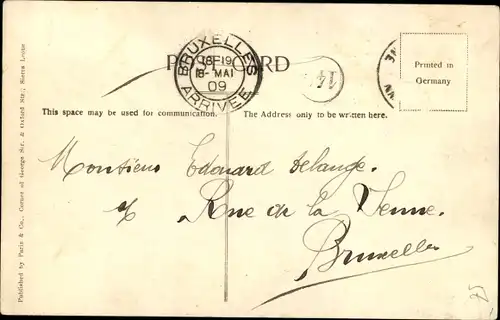 POST CARD
BRUXELLES
18-19
18-MAI
09
ARRIVÉE
14
Printed in
Germany
This space may be used for communication.
The Address only to be written here.
Monsieur Edouard Delange.
Rue de la Senne.
Bruxelles
Published by Paris & Co., Corner of George Str. & Oxford Str.; Sierra Leone